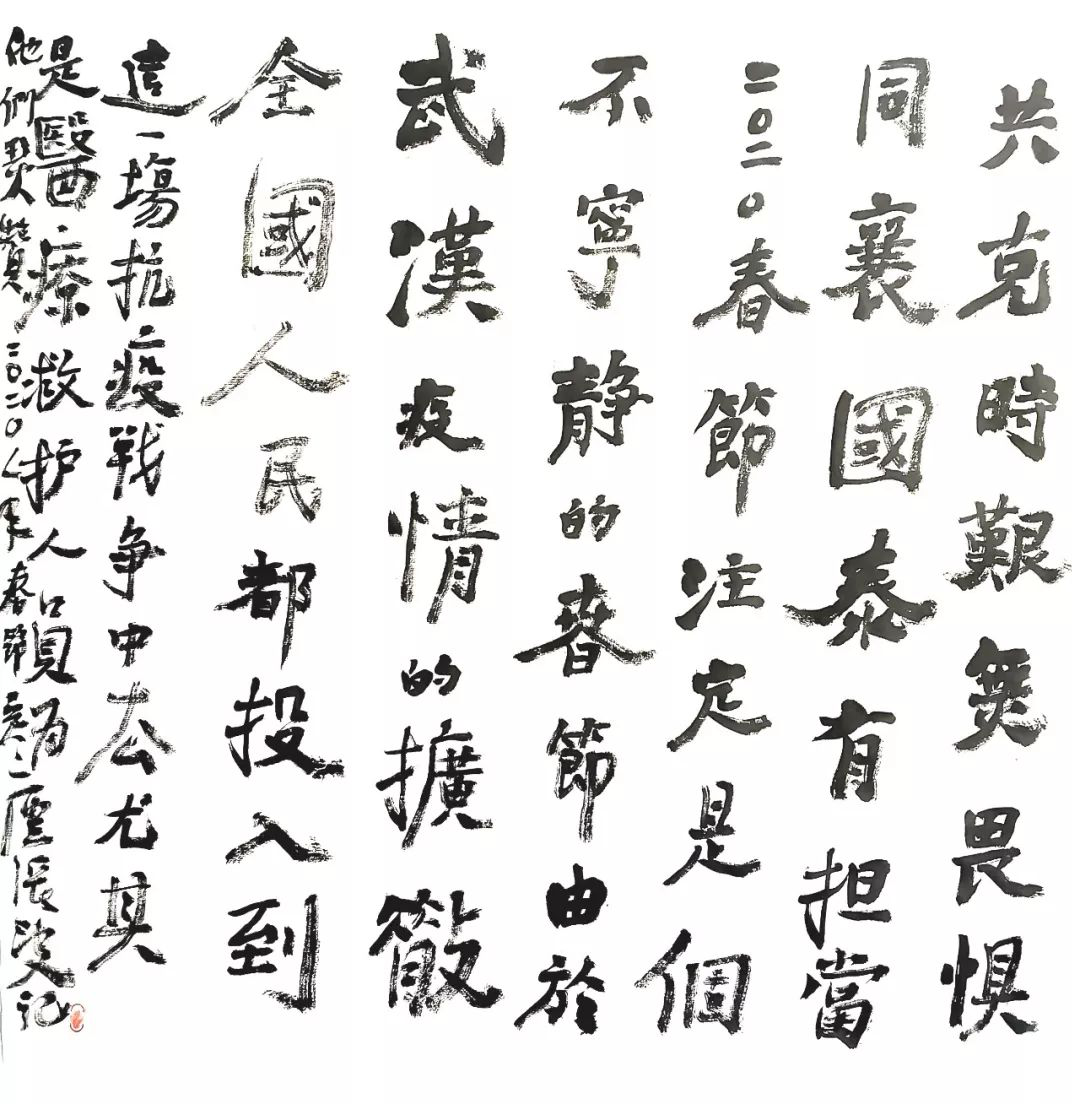 共克時艱無畏懼
同襄國泰有担當
二〇二〇春節注定是個
不寧靜的春節由於
武漢疫情的擴散
全國人民都投入到
這一場抗疫戰争中去尤其
是醫療救护人員
他們 贊二〇二〇年春節 記